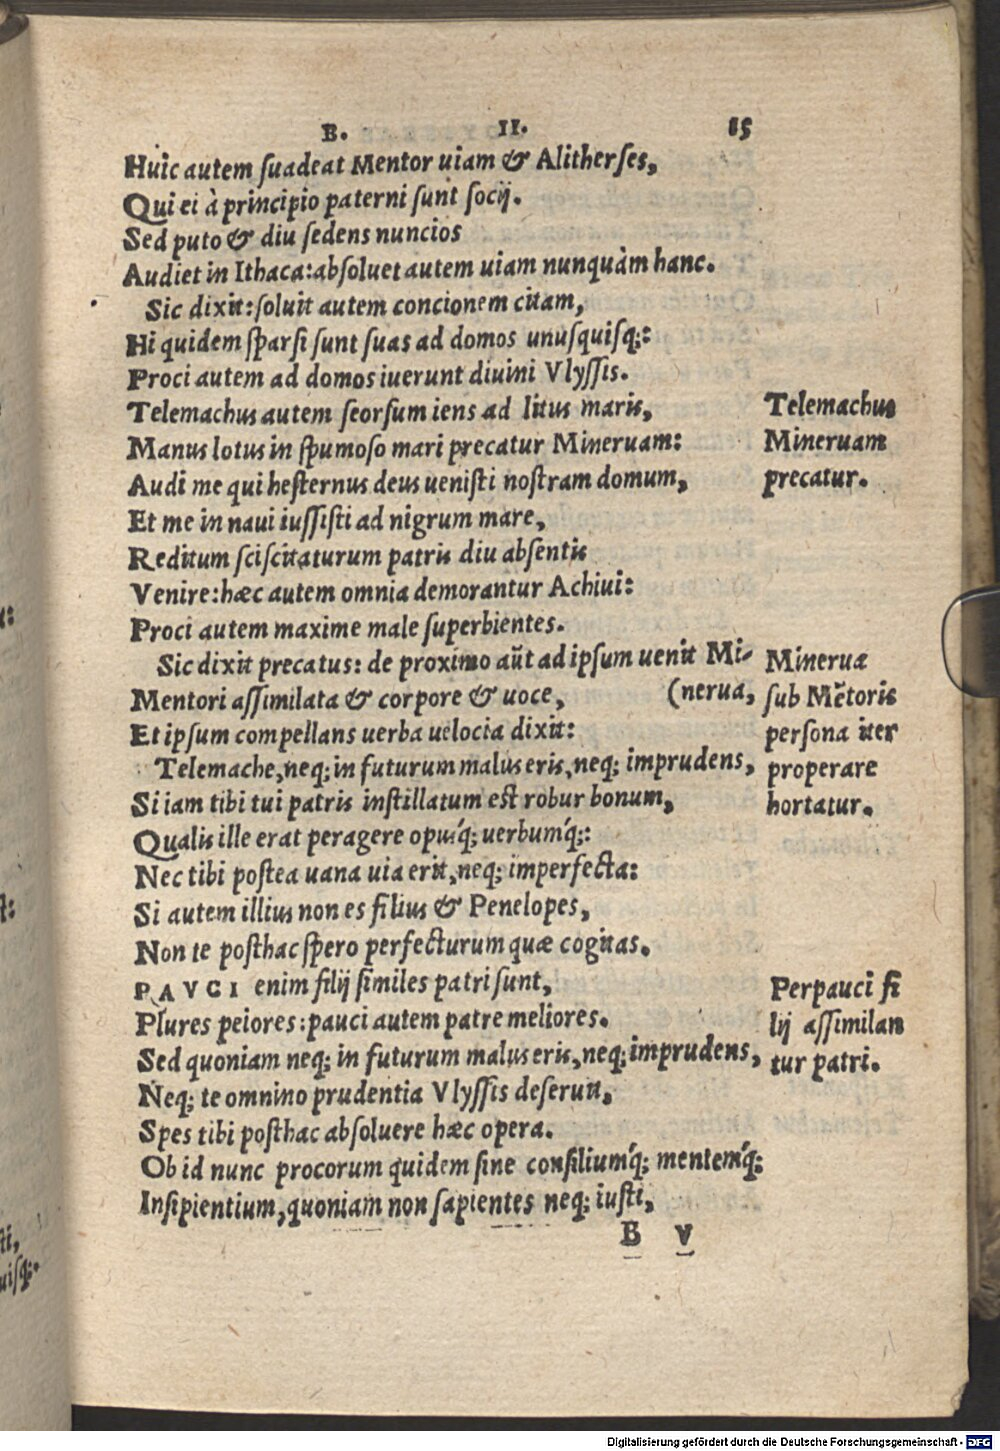 B. II. 15
Huic autem ſuadeat Mentor uiam & Alitherſes,
Qui ei à principio paterni ſunt ſocij.
Sed puto & diu ſedens nuncios
Audiet in Ithaca: abſoluet autem uiam nunquàm hanc.
Sic dixit: ſoluit autem concionem citam,
Hi quidem ſparſi ſunt ſuas ad domos unuſquiſq;:
Proci autem ad domos iuerunt diuini Vlyſſis.
Telemachus autem ſeorſum iens ad litus maris,
Manus lotus in ſpumoſo mari precatur Mineruam:
Audi me qui heſternus deus ueniſti noſtram domum,
Et me in naui iuſſiſti ad nigrum mare,
Reditum ſciſcitaturum patris diu abſentis
Venire: hæc autem omnia demorantur Achiui:
Proci autem maxime male ſuperbientes.
Sic dixit precatus: de proximo aūt ad ipſum uenit Mi-
Mentori aſſimilata & corpore & uoce, (nerua,
Et ipſum compellans uerba uelocia dixit:
Telemache, neq; in futurum malus eris, neq; imprudens,
Si iam tibi tui patris inſtillatum eſt robur bonum,
Qualis ille erat peragere opuśq; uerbumq́;:
Nec tibi poſtea uana uia erit, neq; imperfecta:
Si autem illius non es filius & Penelopes,
Non te poſthac ſpero perfecturum quæ cogitas.
PAVCI enim filij ſimiles patri ſunt,
Plures peiores: pauci autem patre meliores.
Sed quoniam neq; in futurum malus eris, neq; imprudens,
Neq; te omnino prudentia Vlyſſis deſeruit,
Spes tibi poſthac abſoluere hæc opera.
Ob id nunc procorum quidem ſine conſiliumq́; mentemq́;
Inſipientium, quoniam non ſapientes neq; iuſti,
B V
Telemachus
Mineruam
precatur.
Mineruæ
ſub Mẽtoris
perſona iter
properare
hortatur.
Perpauci fi
lij aſſimilan
tur patri.
Digitalisierung gefördert durch die Deutsche Forschungsgemeinschaft - DFG